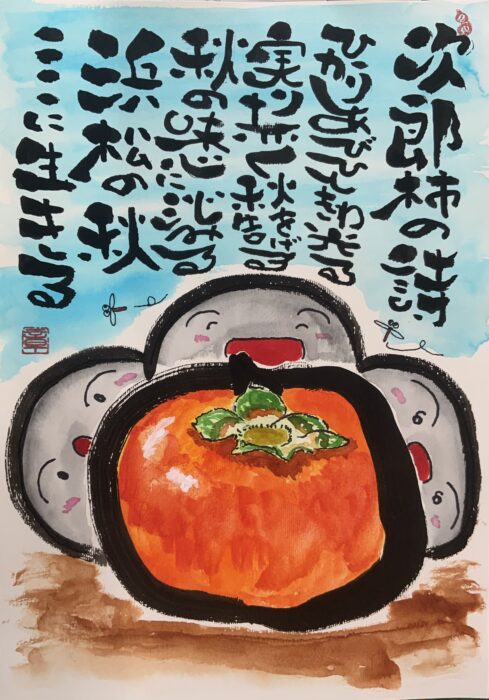 次郎柿の詩
ひかりあびひときわ光る
実り 秋を
秋の味心にしみる
浜松の秋
ここに生きる